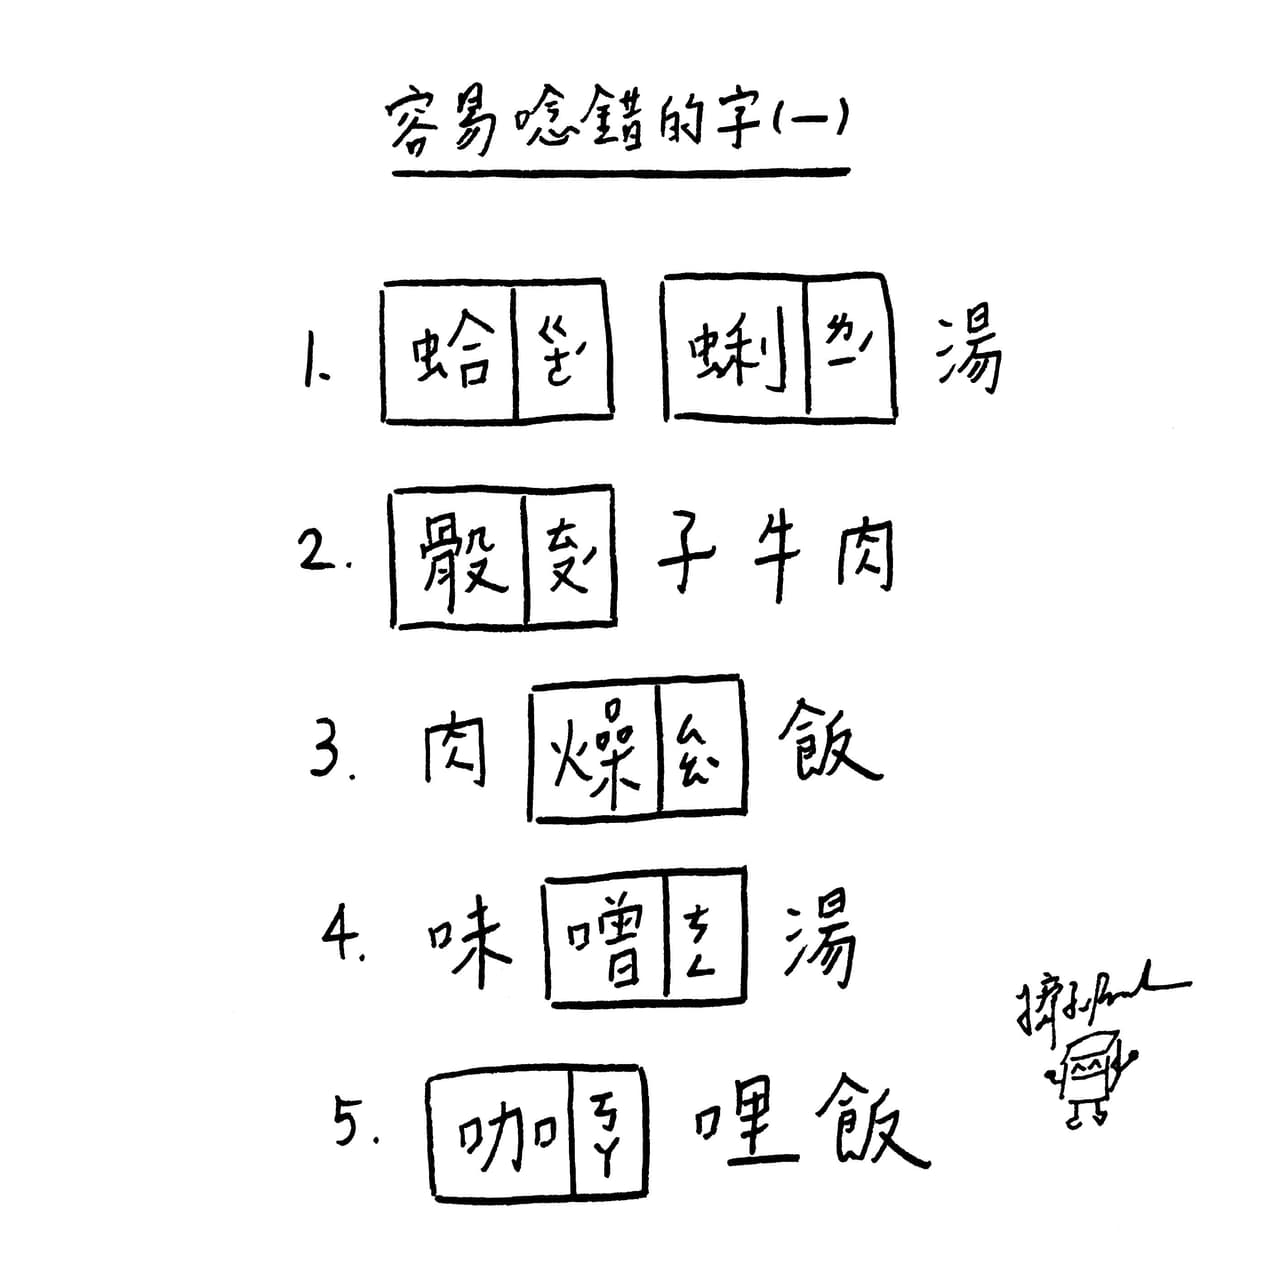 容易唸錯的字(一)
1. 蛤ㄍㄜˊ 蜊ㄌㄧˊ 湯
2. 骰ㄊㄡˊ 子牛肉
3. 肉 燥ㄙㄠˋ 飯
4. 味 噌ㄘㄥ 湯
5. 咖ㄎㄚ 哩飯